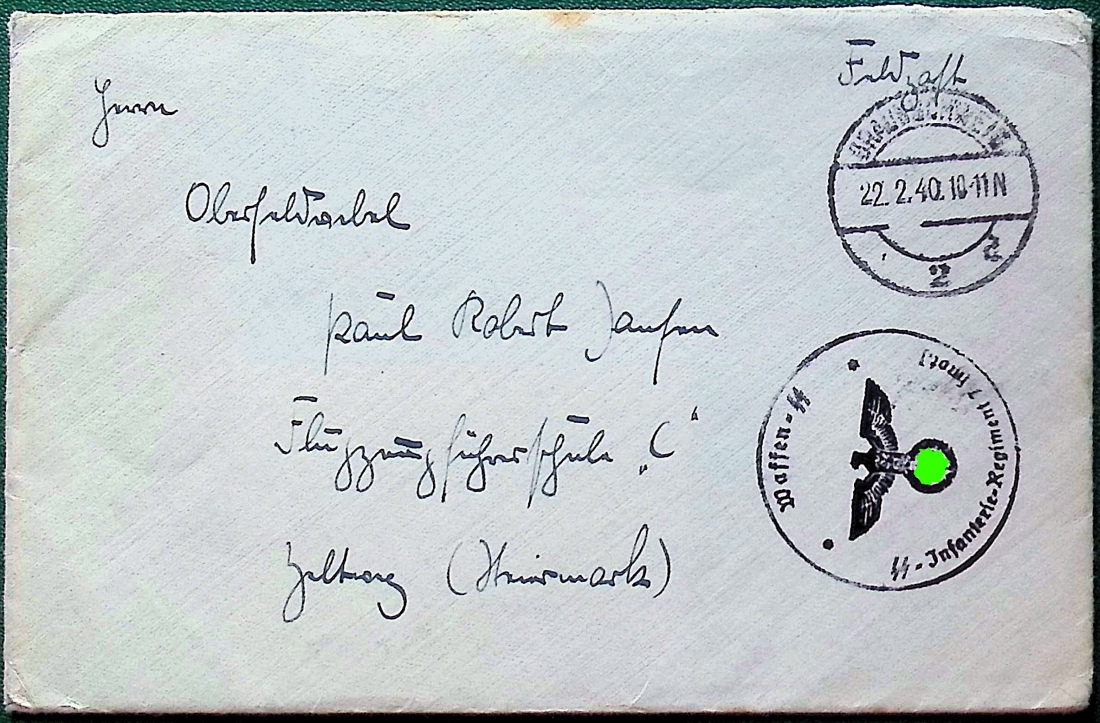 Feldpost
Herrn
BRAUNSCHWEIG
22. 2. 40. 10-11 N
2 c
Oberfeldwebel
Paul Robert Jansen
Flugzeugführerschule „C“
Zeltweg (Steiermark)
Waffen-SS
SS-Infanterie-Regiment 7 (mot.)